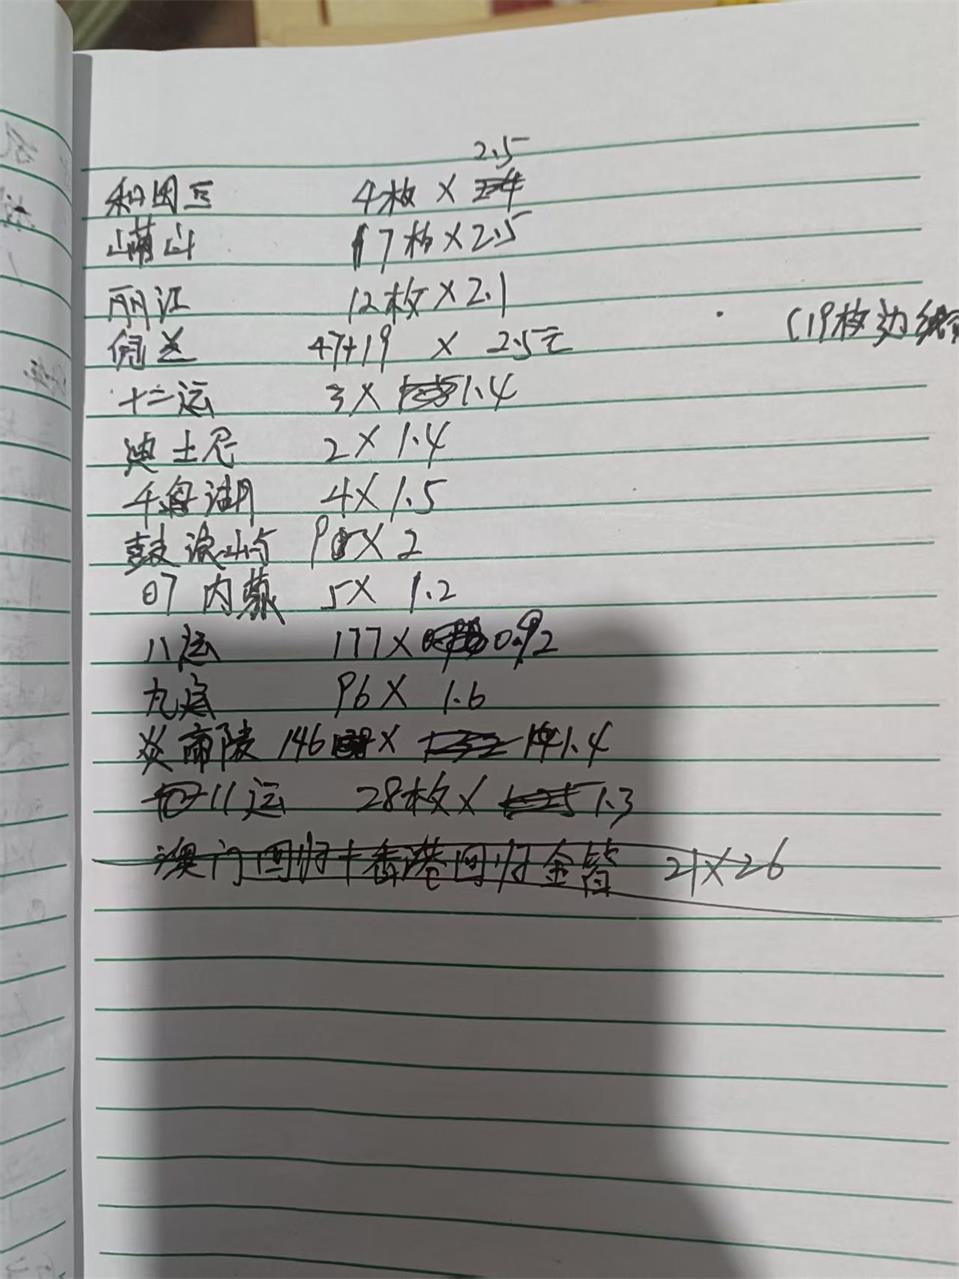 2.5
和田玉 4枚 ×
17枚×2.5
丽江 12枚×2.1
47+19 × 2.5元 (19枚边纸
十二运 3× 1.4
迪士尼 2×1.4
千岛湖 4×1.5
鼓浪屿 ×2
07 内蒙 5× 1.2
八运 177× 0.92
九运 96× 1.6
炎帝陵 146 × 1.4
11运 28枚× 1.3
澳门回归+香港回归金箔 21×26